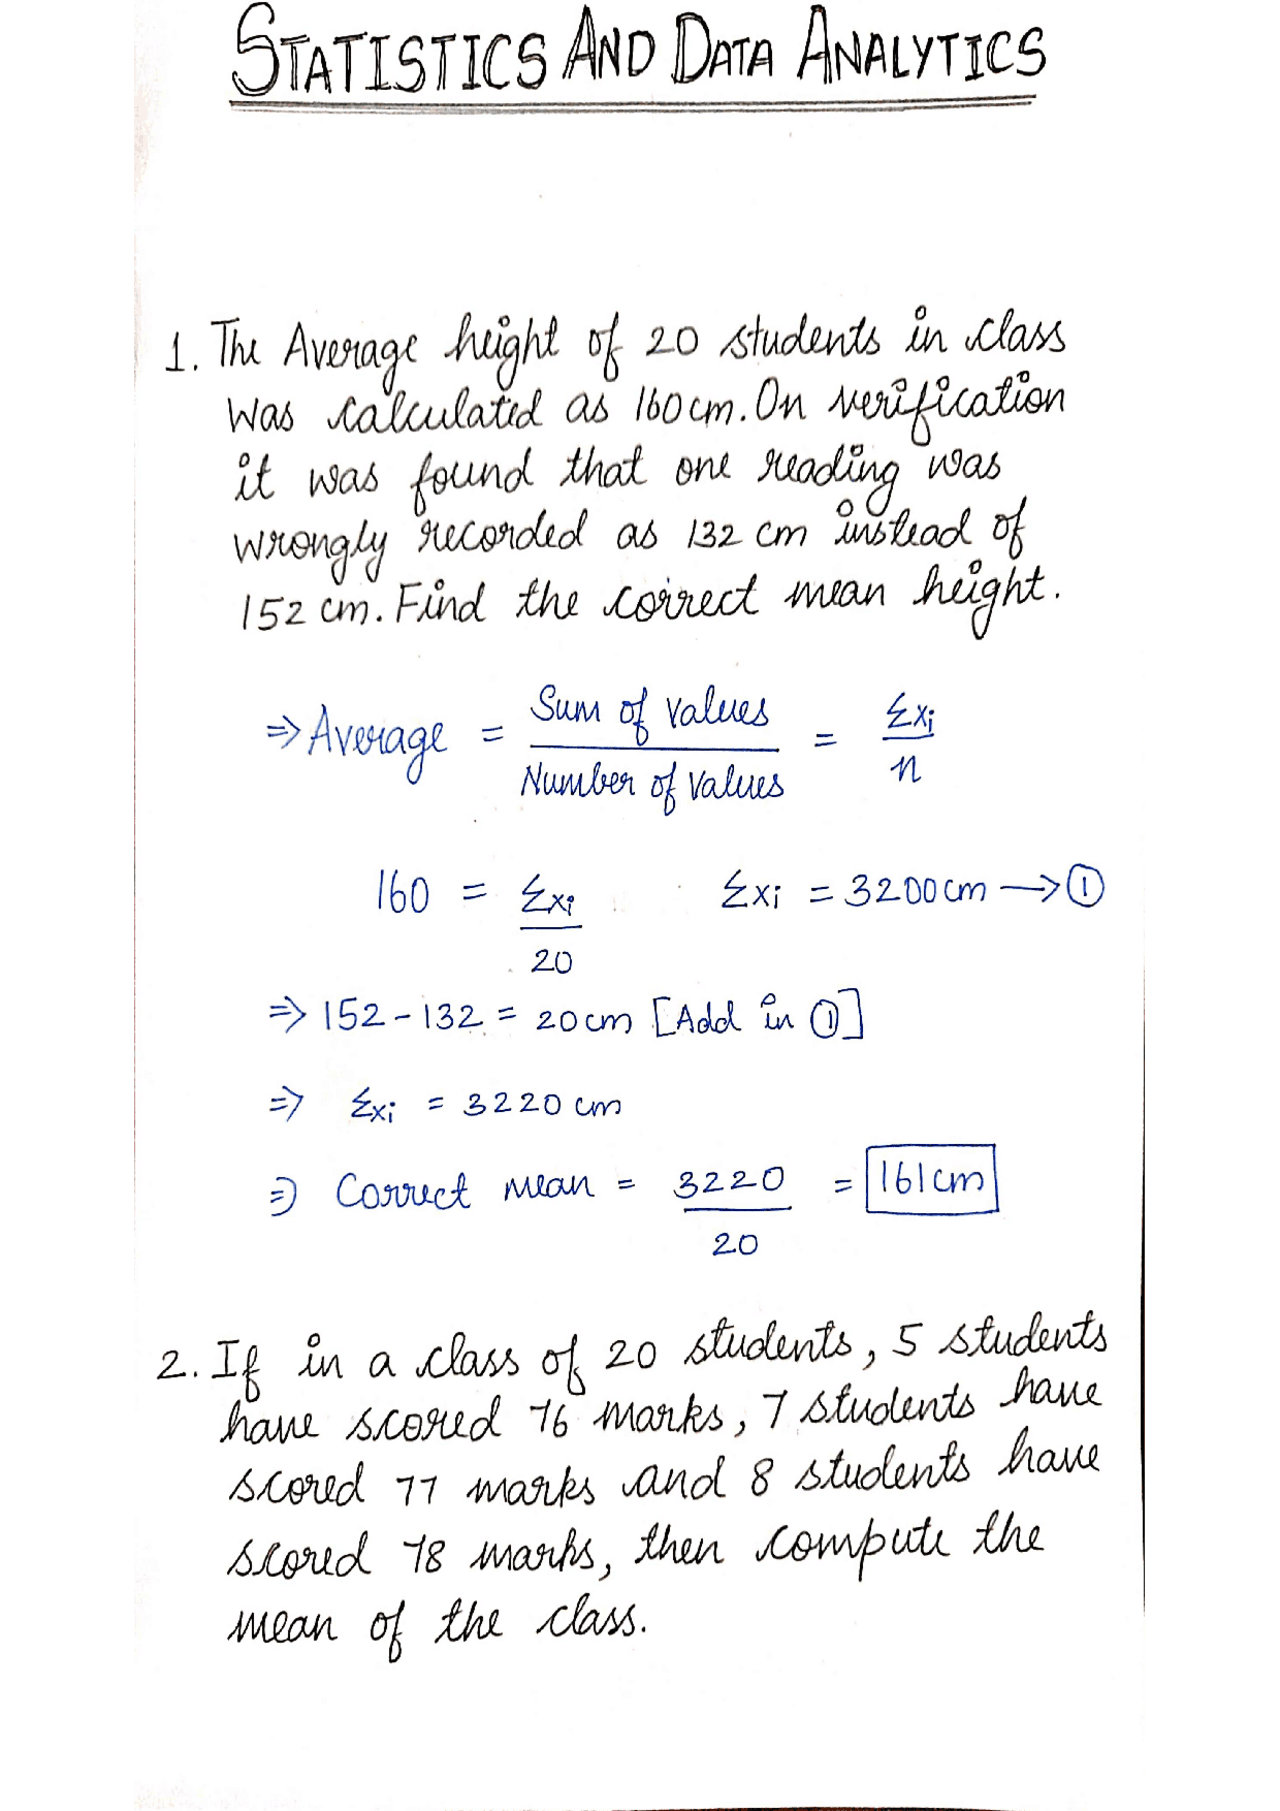 STATISTICS AND DATA ANALYTICS
1. The Average height of 20 students in class
was calculated as 160cm. On verification
it was found that one reading was
wrongly recorded as 132 cm instead of
152 cm. Find the correct mean height.
⇒ Average = Sum of values / Number of values = Σxi / n
160 = Σxi / 20 Σxi = 3200cm → ①
⇒ 152 - 132 = 20cm [Add in ①]
⇒ Σxi = 3220 cm
⇒ Correct mean = 3220 / 20 = 161cm
2. If in a class of 20 students, 5 students
have scored 76 marks, 7 students have
scored 77 marks and 8 students have
scored 78 marks, then compute the
mean of the class.